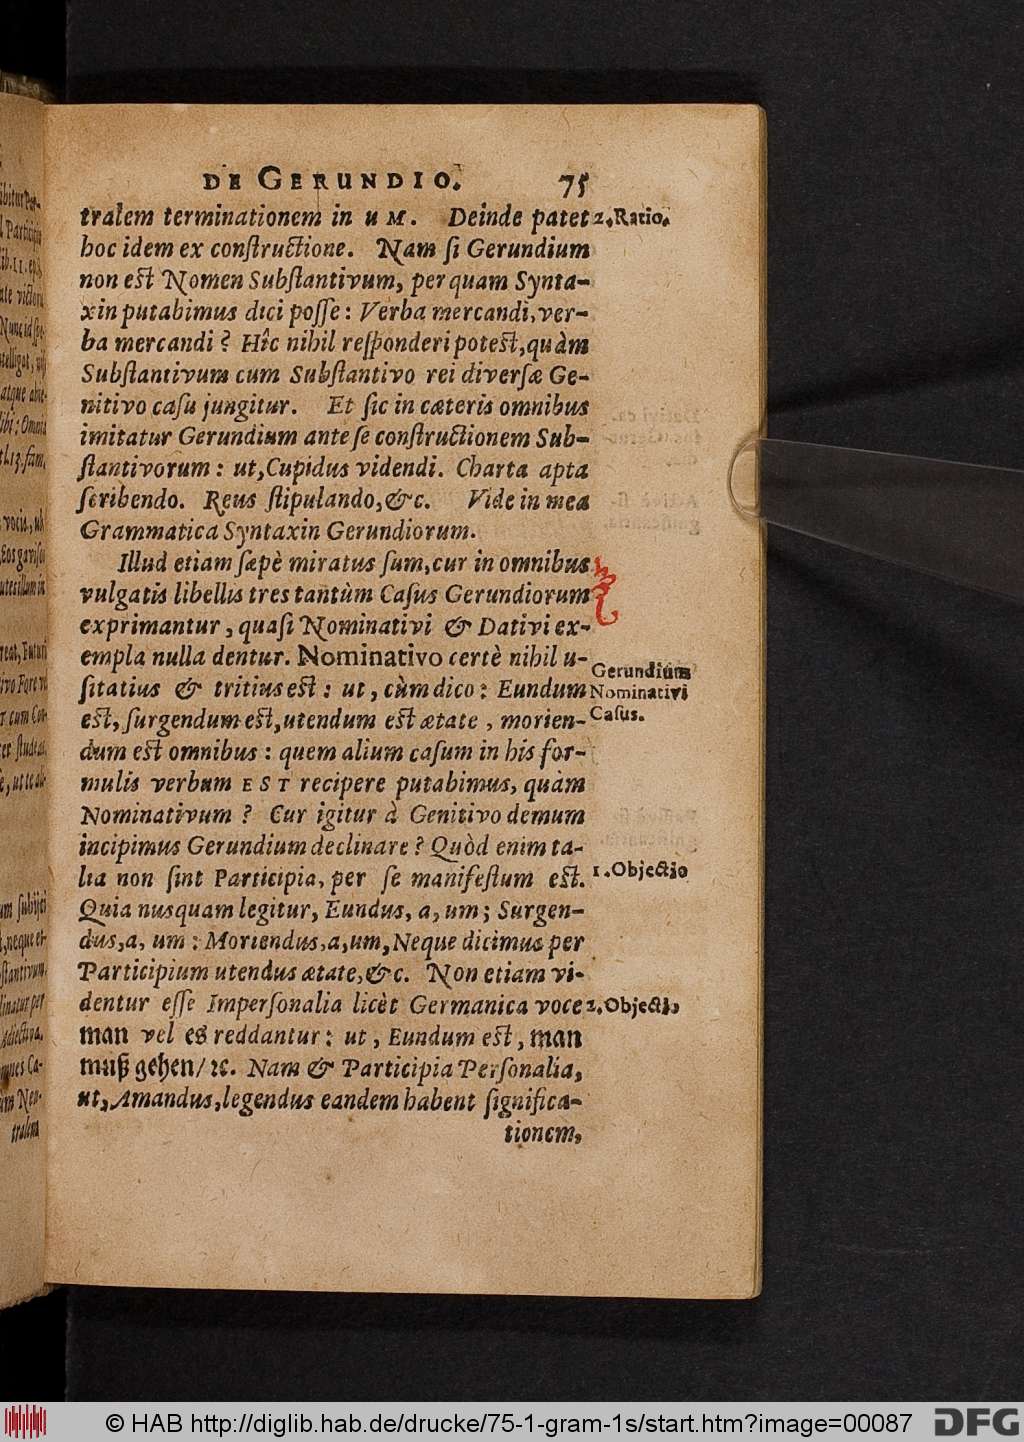 DE GERUNDIO. 75
tralem terminationem in u M. Deinde patet 2. Ratio.
hoc idem ex constructione. Nam si Gerundium
non est Nomen Substantivum, per quam Synta-
xin putabimus dici posse: Verba mercandi, ver-
ba mercandi? Hîc nihil responderi potest, quàm
Substantivum cum Substantivo rei diversæ Ge-
nitivo casu jungitur. Et sic in cæteris omnibus
imitatur Gerundium ante se constructionem Sub-
stantivorum: ut, Cupidus videndi. Charta apta
scribendo. Reus stipulando, &c. Vide in mea
Grammatica Syntaxin Gerundiorum.
Illud etiam sæpè miratus sum, cur in omnibus
vulgatis libellis tres tantùm Casus Gerundiorum
exprimantur, quasi Nominativi & Dativi ex-
empla nulla dentur. Nominativo certè nihil u-
sitatius & tritius est: ut, cùm dico: Eundum
est, surgendum est, utendum est ætate, morien-
dum est omnibus: quem alium casum in his for-
mulis verbum EST recipere putabimus, quàm
Nominativum? Cur igitur à Genitivo demum
incipimus Gerundium declinare? Quòd enim ta-
lia non sint Participia, per se manifestum est.
Quia nusquam legitur, Eundus, a, um; Surgen-
dus, a, um: Moriendus, a, um, Neque dicimus per
Participium utendus ætate, &c. Non etiam vi-
dentur esse Impersonalia licèt Germanica voce
man vel es reddantur: ut, Eundum est, man
muß gehen/ ꝛc. Nam & Participia Personalia,
ut, Amandus, legendus eandem habent significa-
tionem,
Gerundium
Nominativi
Casus.
1. Objectio
2. Objectio
© HAB http://diglib.hab.de/drucke/75-1-gram-1s/start.htm?image=00087
DFG